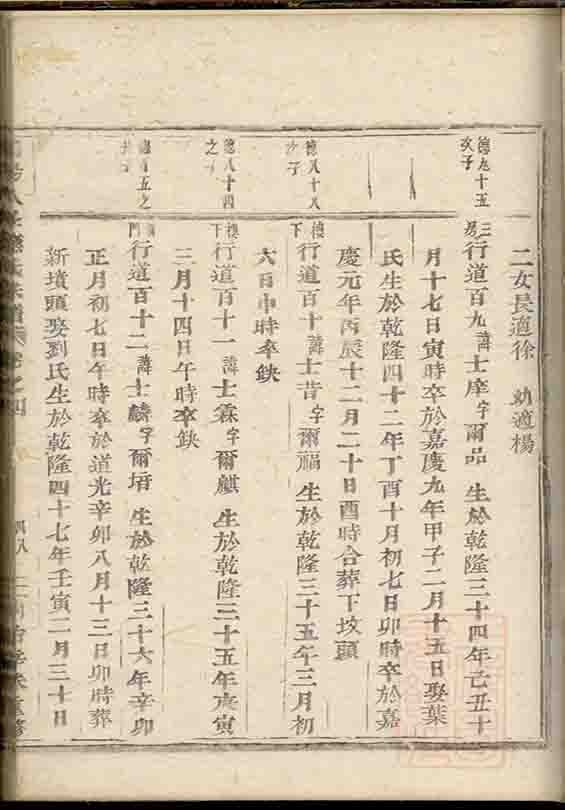 二女長適徐　幼適楊
德九十五
次子
行道百九諱士摩字爾品　生於乾隆三十四年己丑十
月十七日寅時卒於嘉慶九年甲子二月十五日娶葉
氏生於乾隆四十二年丁酉十月初七日卯時卒於嘉
慶元年丙辰十二月二十日酉時合葬下坟頭
德八十八
次子
行道百十諱士昔字爾福　生於乾隆三十五年三月初
六日申時卒缺
德八十四
之子
行道百十一諱士霖字爾麒　生於乾隆三十五年庚寅
三月十四日午時卒缺
五之
行道百十二諱士麟字爾培　生於乾隆三十六年辛卯
正月初七日午時卒於道光辛卯八月十三日卯時葬
新墳頭娶劉氏生於乾隆四十七年壬寅二月三十日